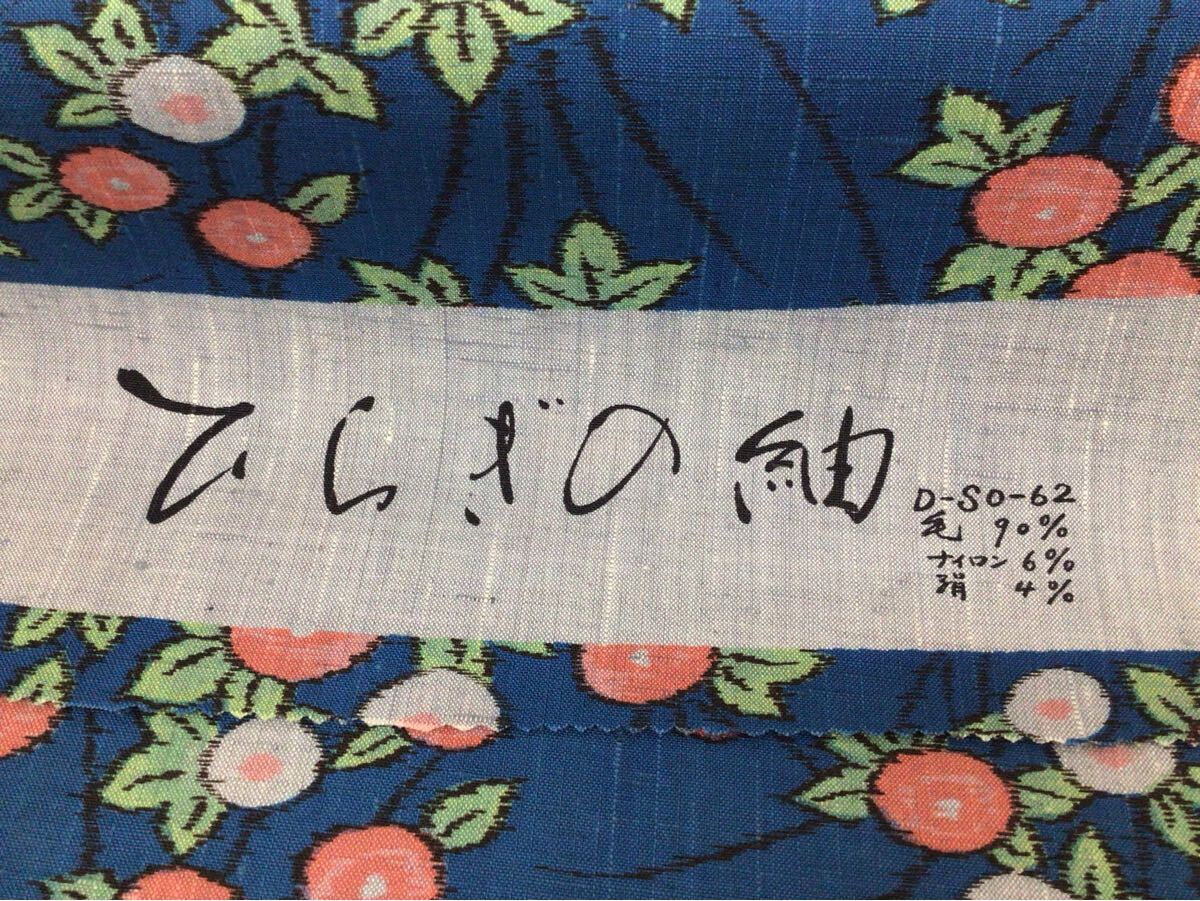 ひらぎの紬
D-SO-62
毛 90%
ナイロン 6%
絹 4%